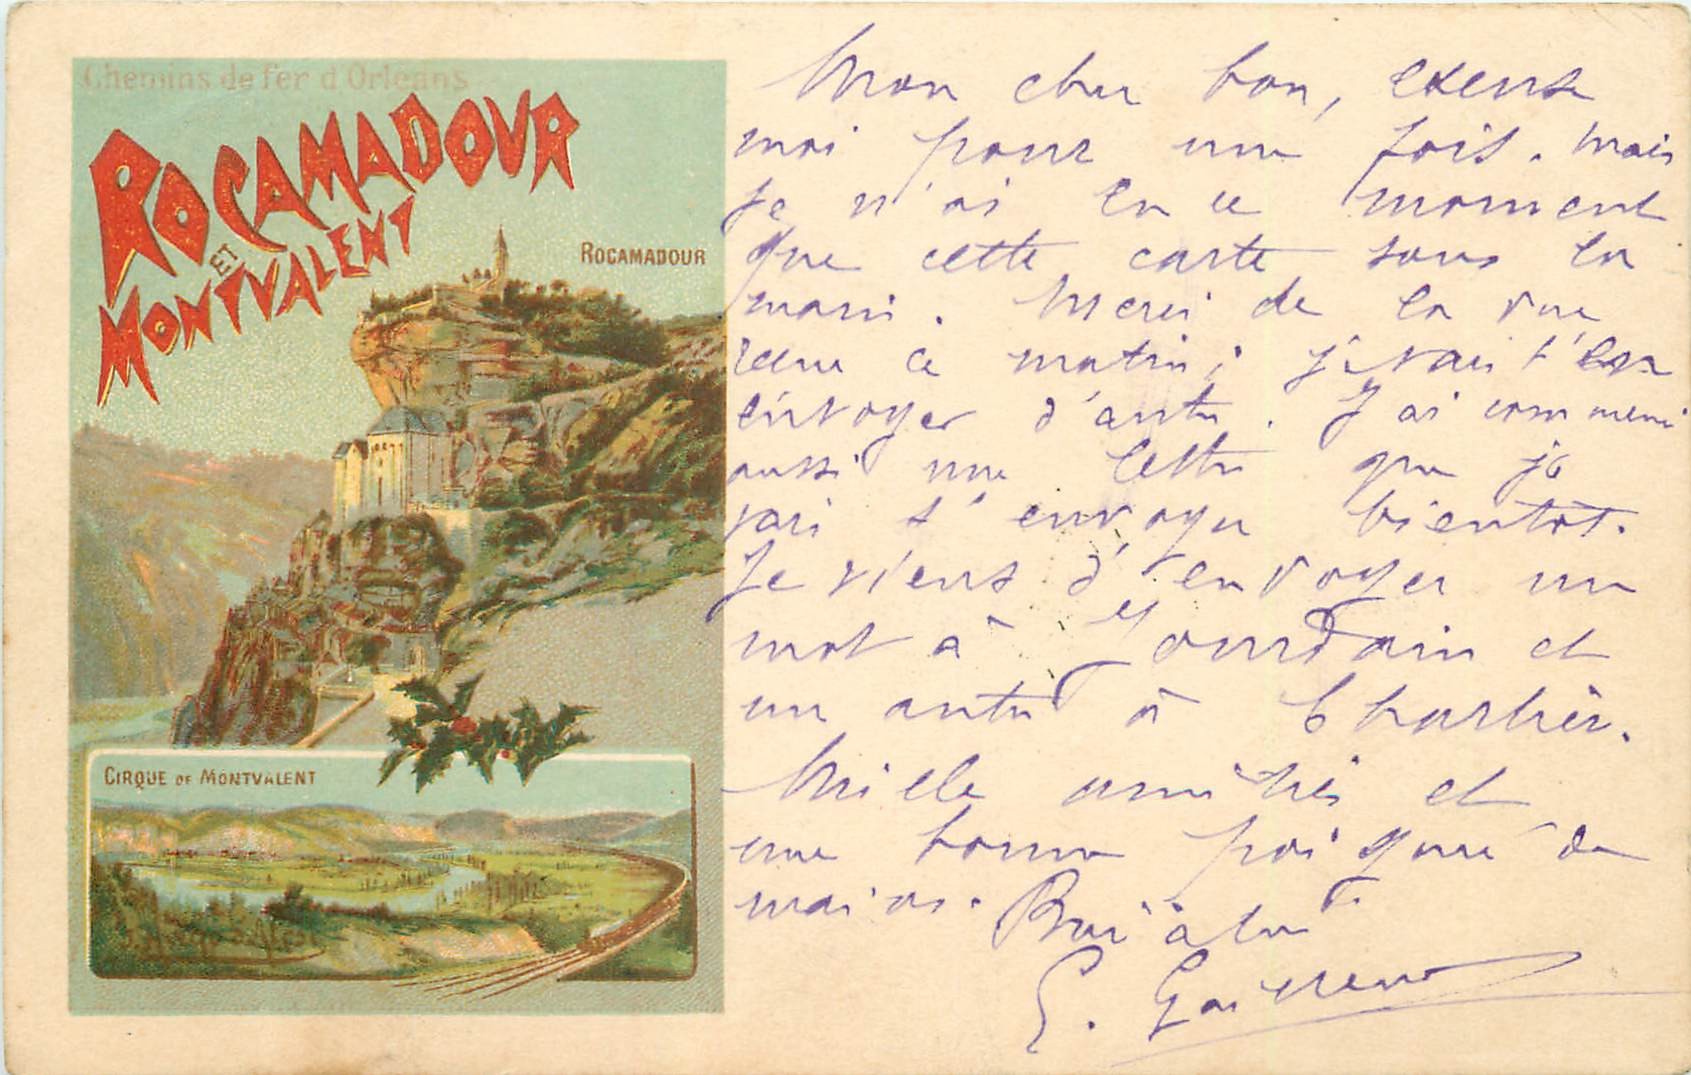 Chemins de fer d'Orléans
ROCAMADOUR
ET
MONTVALENT
ROCAMADOUR
CIRQUE DE MONTVALENT
Mon cher bon, excuse
moi pour une fois. Mais
je n'ai en ce moment
que cette carte sous la
main. Merci de la vue
reçue ce matin; je vais t'en
envoyer d'autre. J'ai commencé
aussi une lettre que je
vais t'envoyer bientôt.
Je viens d'envoyer un
mot à Jourdain et
un autre à Charlier.
Mille amitiés et
une bonne poignée de
mains. Bien à toi
G.